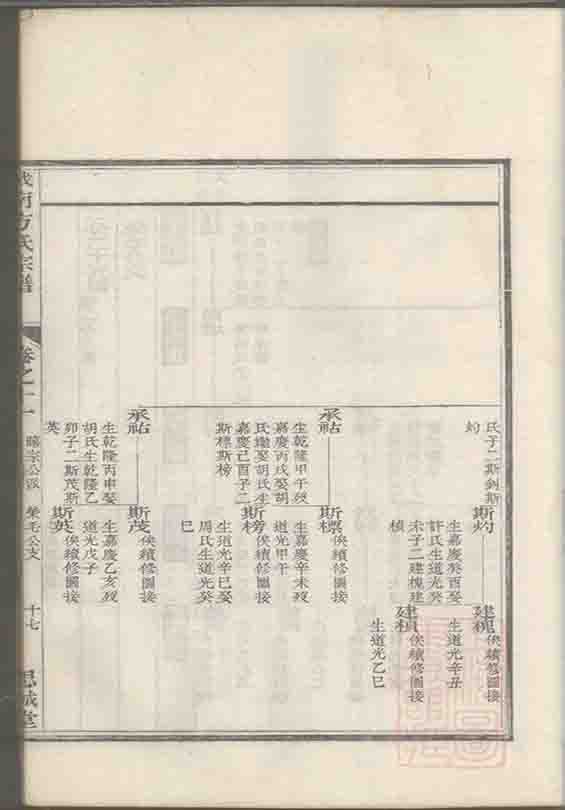 氏子二斯釗斯
灼
斯灼
生嘉慶癸酉娶
許氏生道光癸
未子二建槐建
楨
建槐
俟續修圖接
生道光辛丑
建楨
俟續修圖接
生道光乙巳
承祜
生乾隆甲午歿
嘉慶丙戌娶胡
氏繼娶胡氏生
嘉慶己酉子二
斯標斯榜
斯標
俟續修圖接
生嘉慶辛未歿
道光甲午
斯榜
俟續修圖接
生道光辛巳娶
周氏生道光癸
巳
承祜
生乾隆丙申娶
胡氏生乾隆乙
卯子二斯茂斯
英
斯茂
俟續修圖接
生嘉慶乙亥歿
斯英
俟續修圖接
道光戊子
南方氏宗譜
卷之十二
曉宗公派
榮毛公支
十七
思誠堂